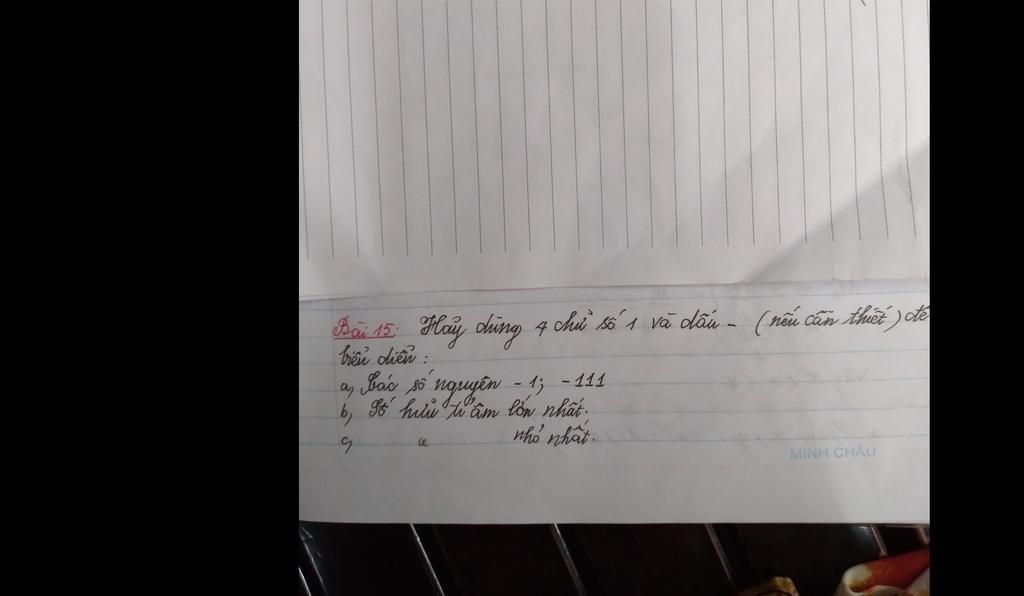 Bài 15: Hãy dùng 4 chữ số 1 và dấu - (nếu cần thiết) để
biểu diễn:
a, Các số nguyên - 1; -111
b, Số hữu tỉ âm lớn nhất.
c, " nhỏ nhất.
MINH CHÂU